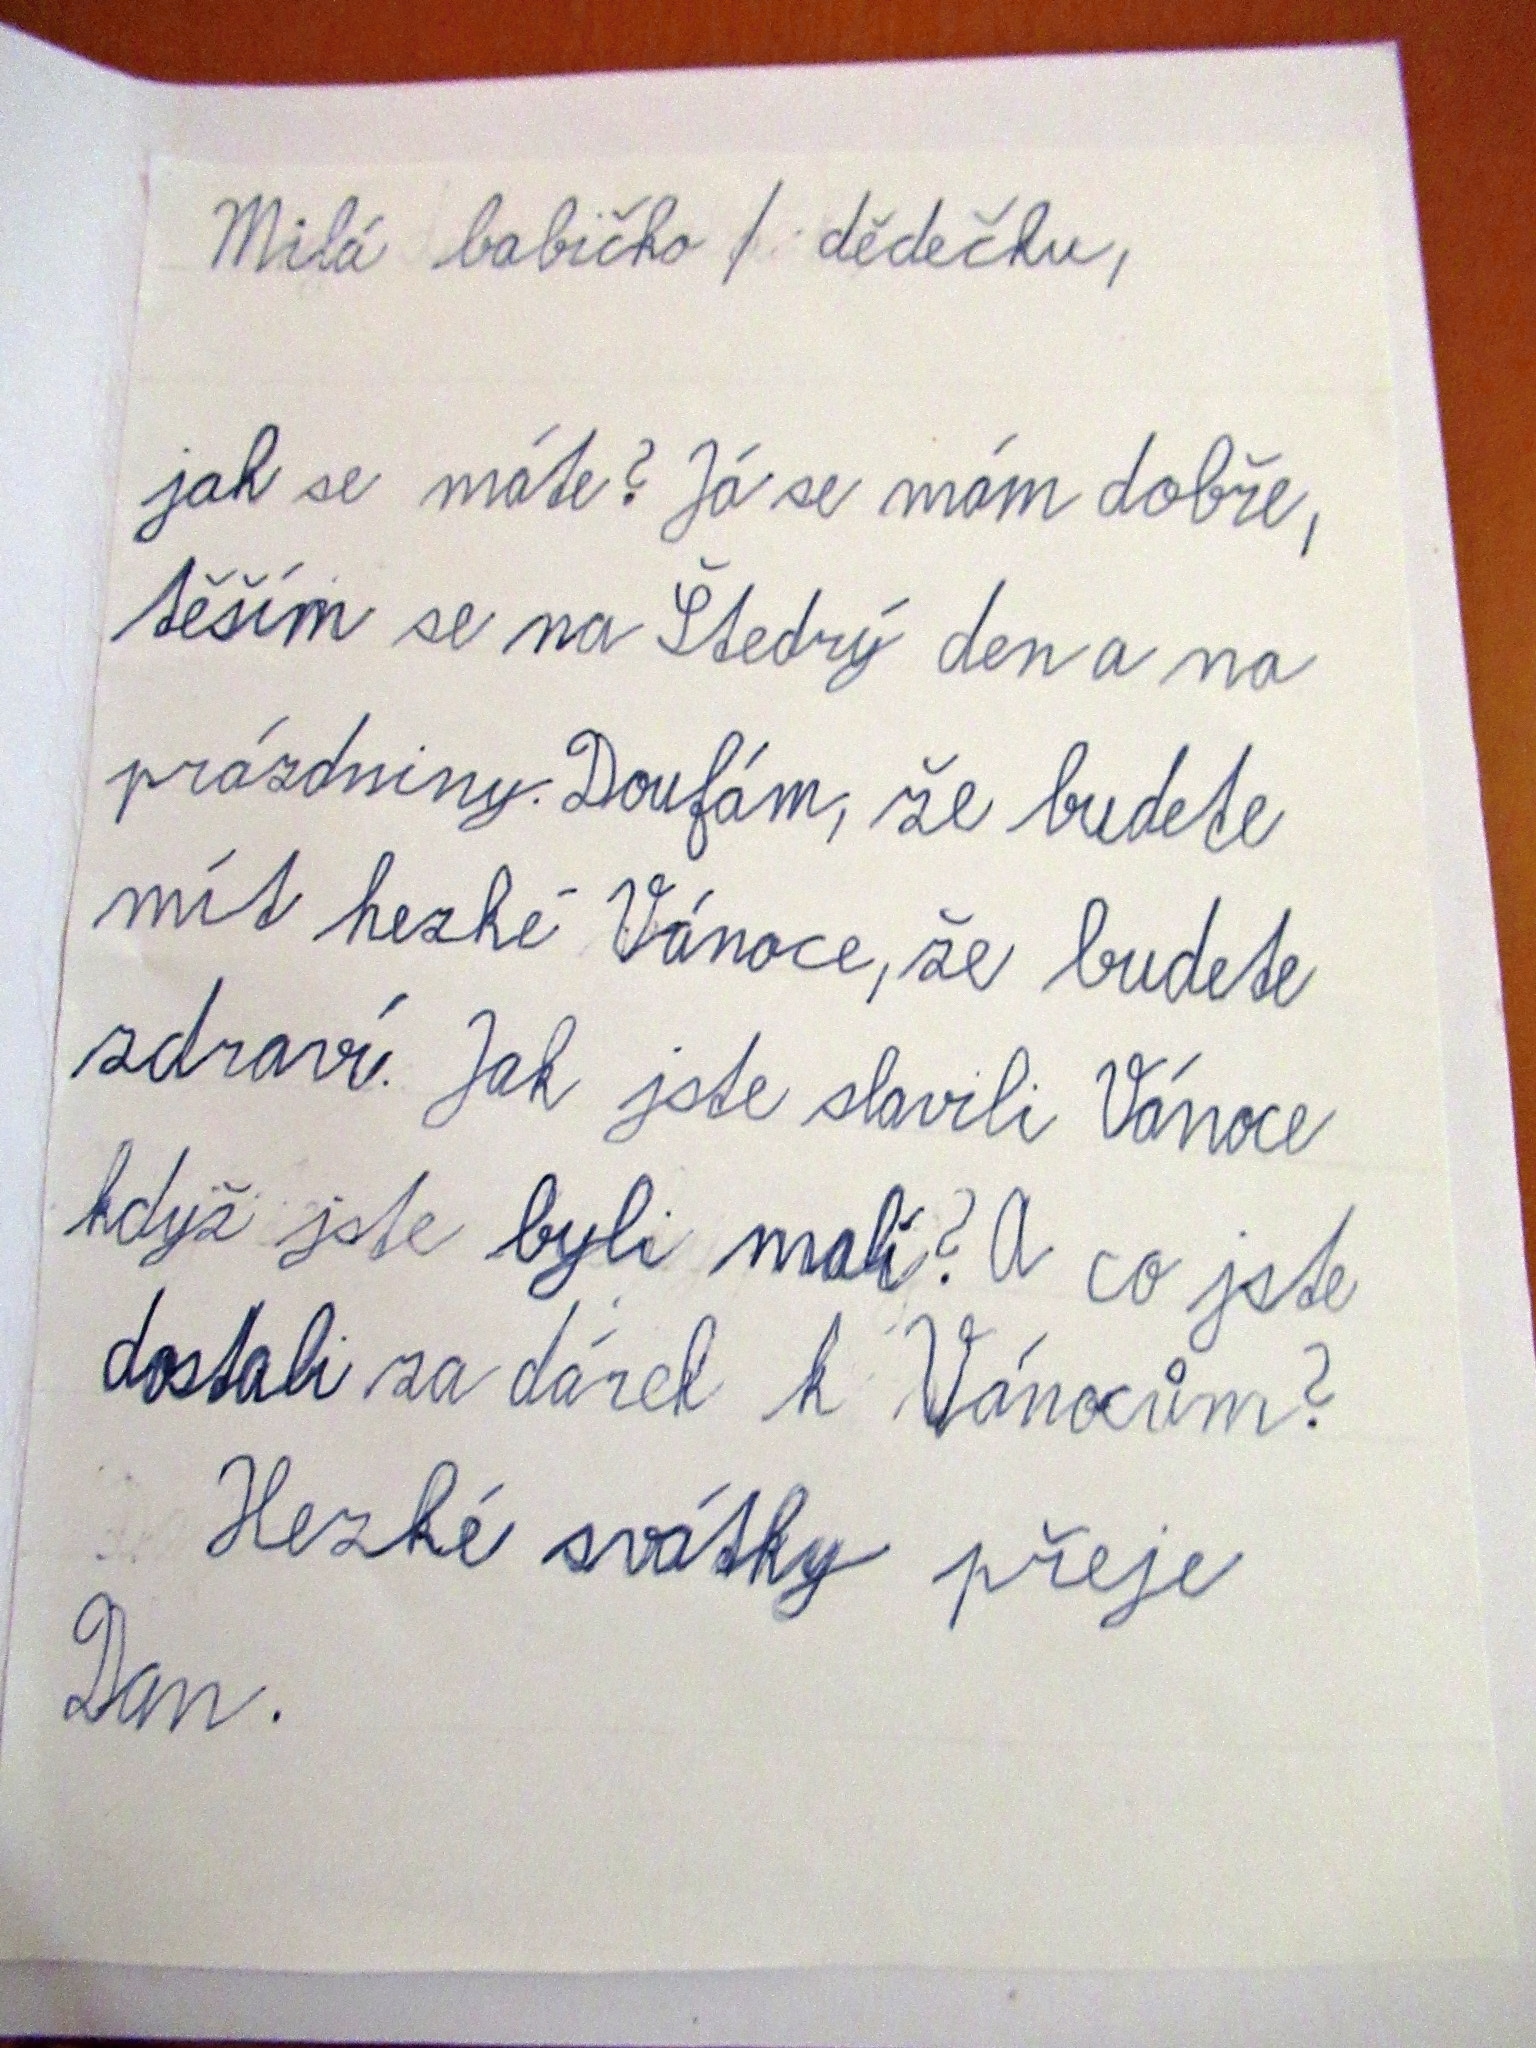 Milá babičko / dědečku,
jak se máte? Já se mám dobře,
těším se na Štedrý den a na
prázdniny. Doufám, že budete
mít hezké Vánoce, že budete
zdraví. Jak jste slavili Vánoce
když jste byli malí? A co jste
dostali za dárek k Vánocům?
Hezké svátky přeje
Dan.